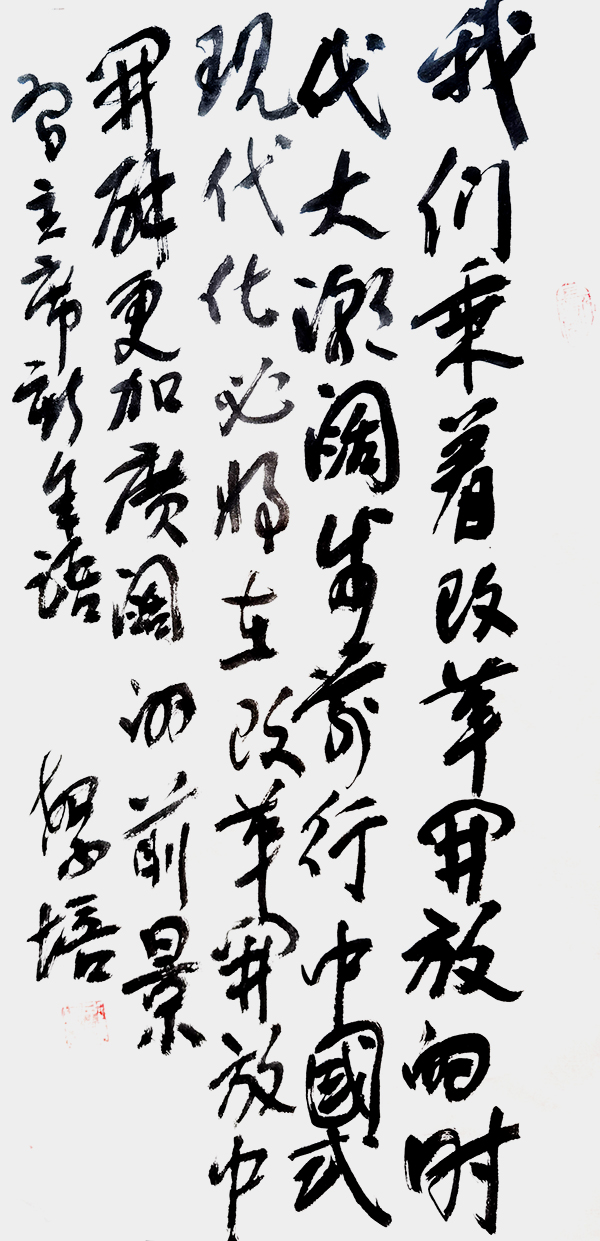 我们乘着改革開放的时
代大潮阔步前行中國式
现代化必将在改革開放中
開辟更加廣阔的前景
习主席新年语
培